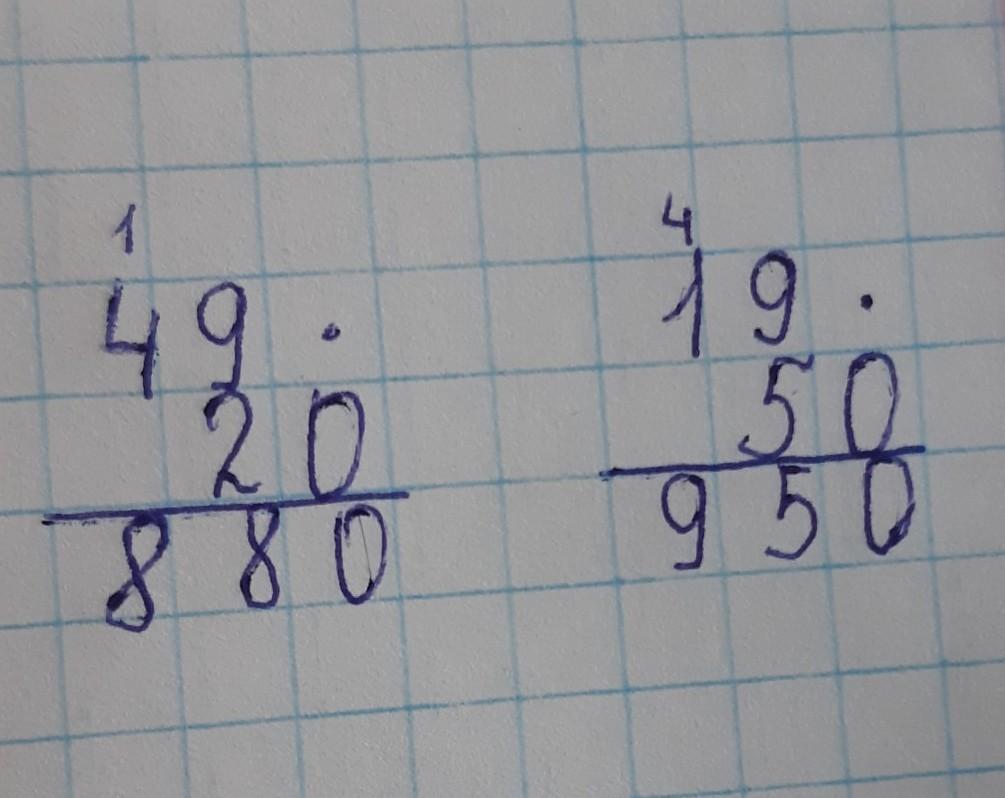 1
49 ·
20
880
4
19 ·
50
950